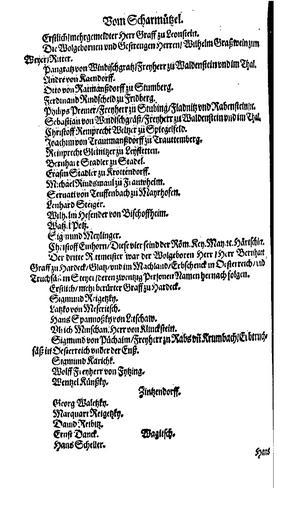 Vom Scharmützel.
Erstlich/mehrgemeldter Herr Graff zu Leonstein.
Die Wolgebornen und Gestrengen Herren/ Wilhelm Graßwein zum
Weyer/Ritter.
Pangratz von Windischgrätz/Freyherr zu Waldenstein und im Thal.
Andre von Raendorff.
Otto von Raimanßdorff zu Stumberg.
Ferdinand Rindscheid zu Fridberg.
Philips Preuer/Freyherr zu Stubing/Fladnitz und Rabenstein
Sebastian von Windischgräß/Freyherr zu Waldenstein und im Thal.
Christoff Remprecht Weltzer zu Spiegelfeld.
Joachim von Trautmanßdorff zu Trauttemberg.
Reinprecht Gleinitzer zu
Bernhart Stadler zu Stadel.
Erasm Stadler zu Krottendorff.
Michael Rindsmaul zu Frauwheim.
Servati von Teuffenbach zu Mayrhofen.
Lenhard Steiger.
Waltz. im Hefender von Bischoffheim.
Watz.
Sigmund Metzlinger.
Christoff Einhorn/ Diese vier seind der Röm. Key. May. rc. Hartschir.
Der dritte Rittmeister war der Wolgeboren Herr Herr Bernhart
Graff zu Hardeck/Glatz/und im Machland/Erbschenck in Oesterreich/und
Truchsäß in Steyer/deren zwentzig Personen Namen hernach folgen.
Erstlich/ mehr berürter Graff zu Hardeck.
Sigmund Reigetzky.
Latzko von Meseritsch.
Hans Spannofsky von Laschaw.
Ulrich Minschan. Herr von Klinckstein.
Sigmund von Püchaim/Freyherr zu Rabs uñ Krumbach/Erbtruch-
säß in Oesterreich unter der Enß.
Sigmund Karicht.
Wolff Freyherr von Eytzing.
Wentzel Künßky.
Zintzendorff.
Georg Waletzky.
Marquart Reigetzky.
David Reibitz.
Ernst Danck. Waglisch.
Hans Scheller.
Hans